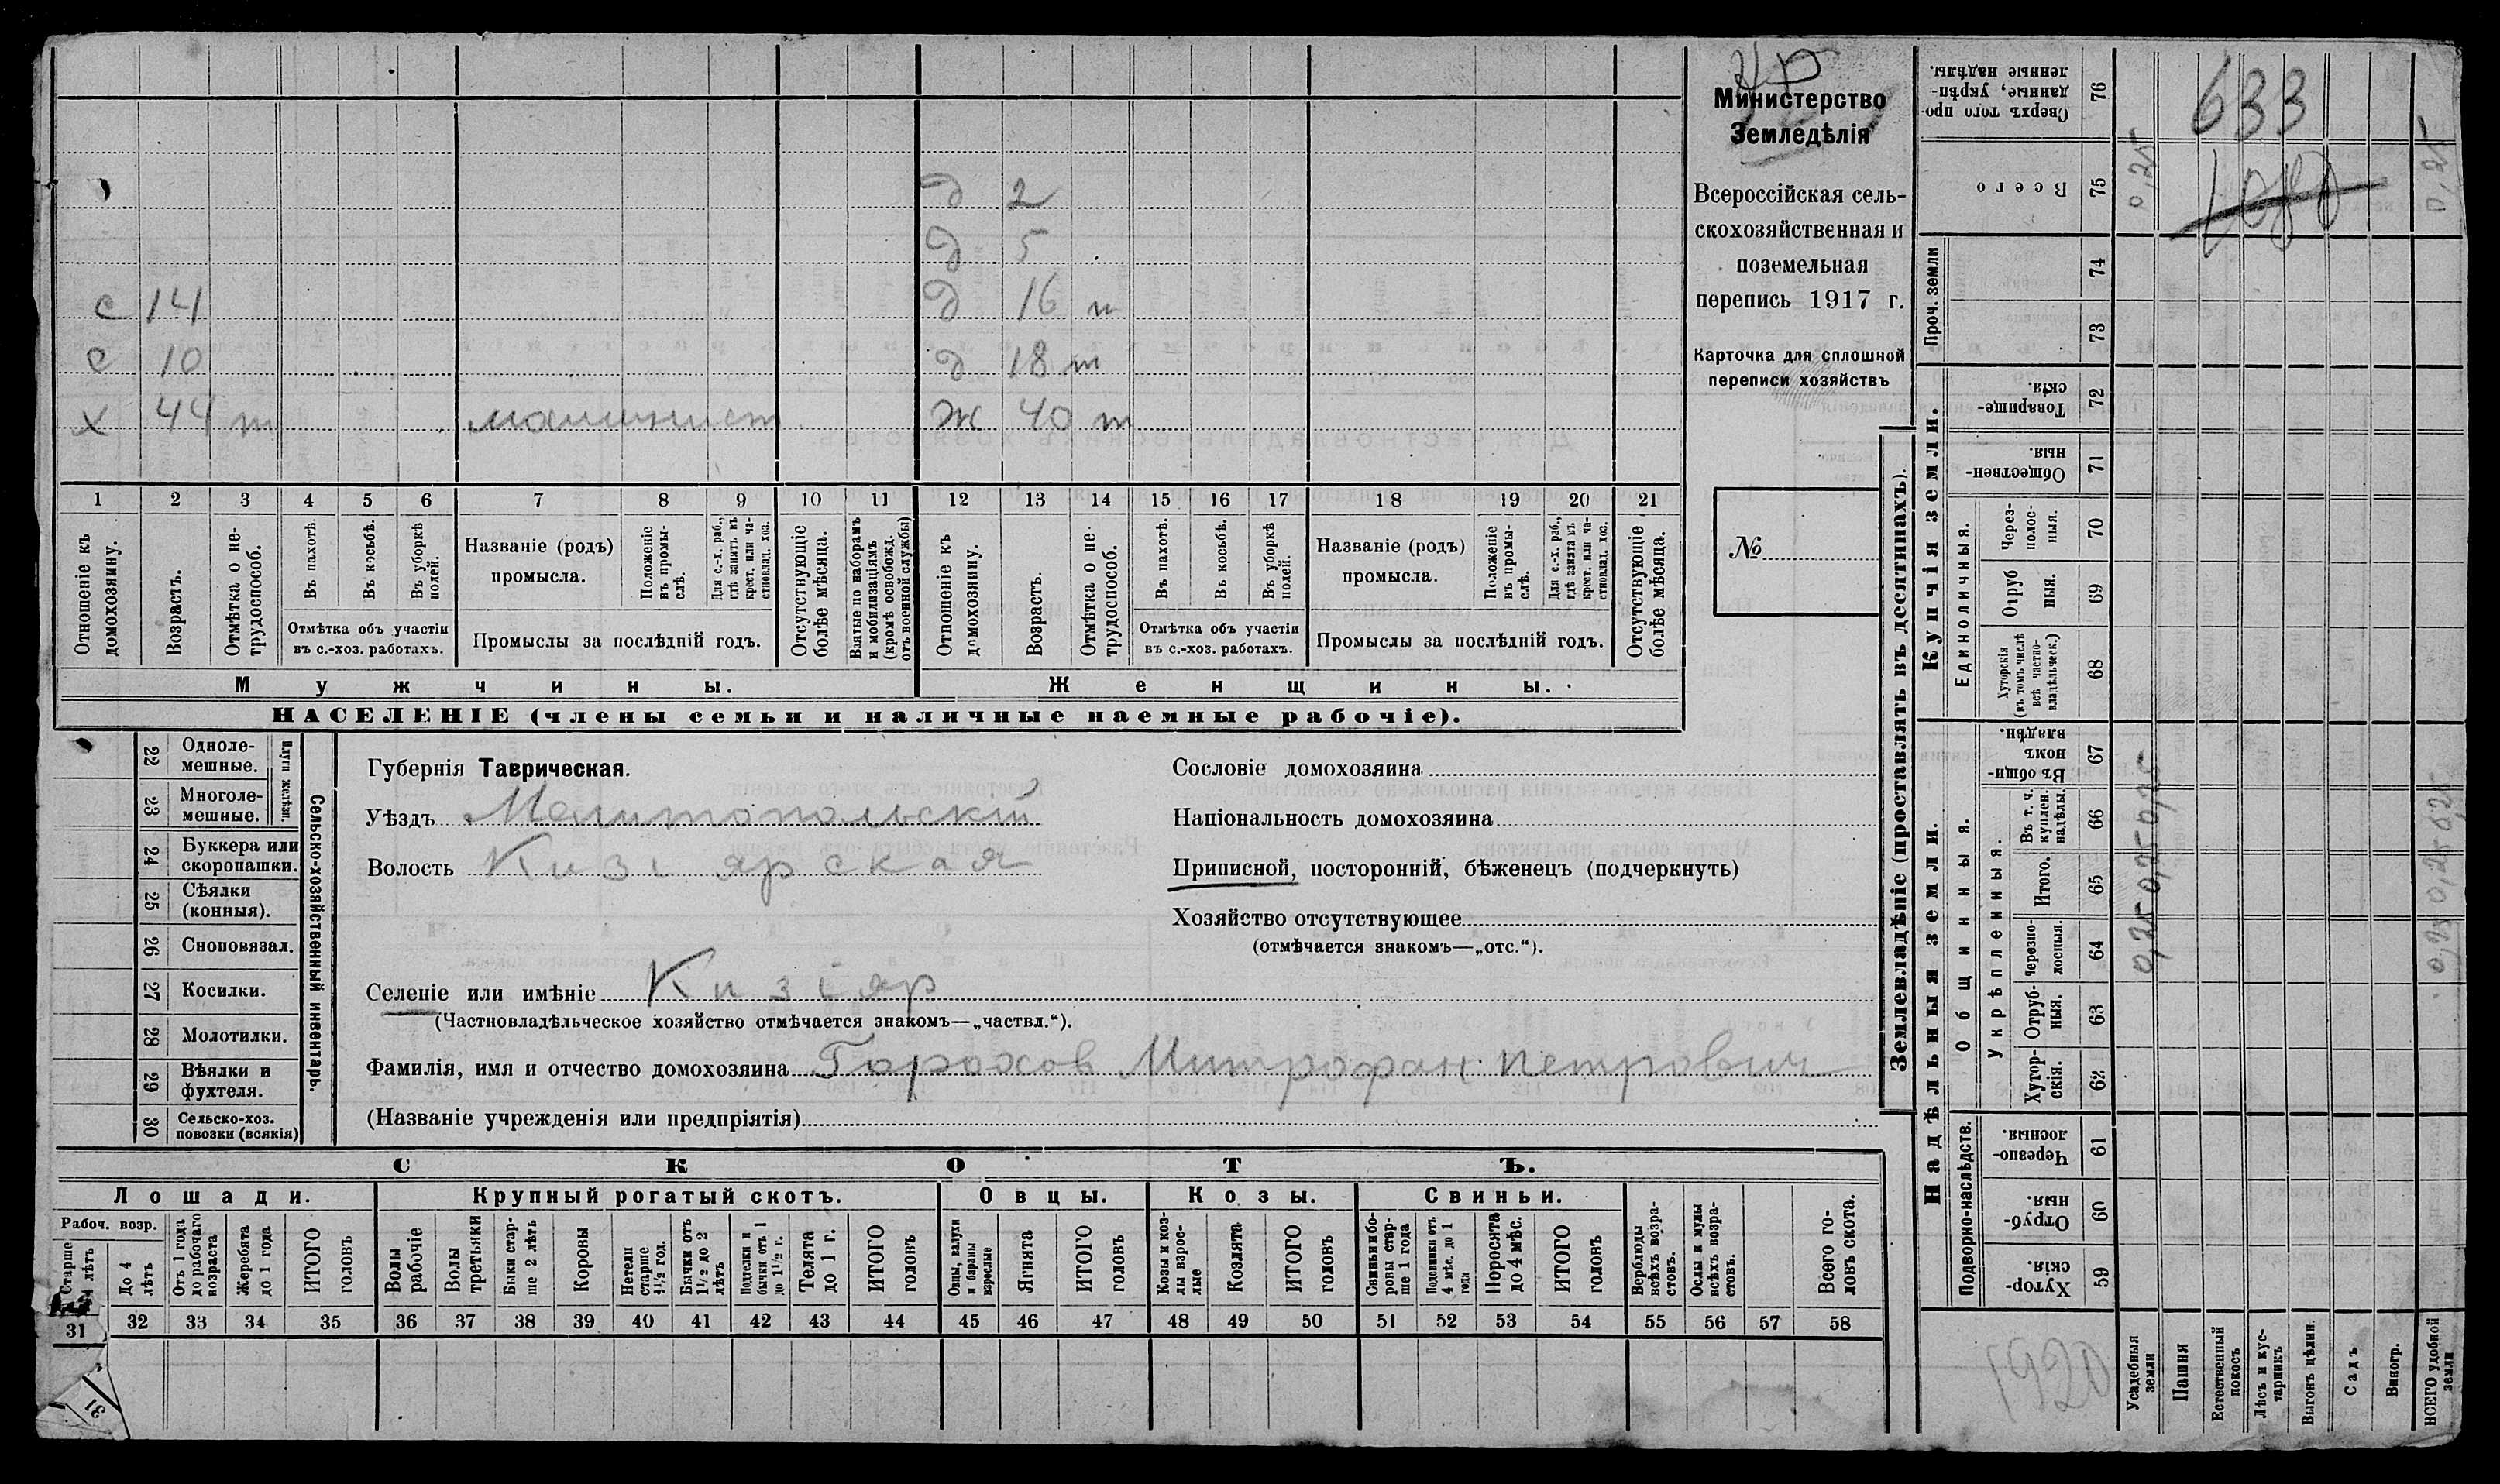 Министерство
Земледѣлія
Всероссійская сель-
скохозяйственная и
поземельная
перепись 1917 г.
Карточка для сплошной
переписи хозяйствъ
№
д 2
д 5
с 14 д 16 п
с 10 д 18 т
х 44 т машинист ж 40 т
1 2 3 4 5 6 7 8 9 10 11 12 13 14 15 16 17 18 19 20 21
Отношеніе къ домохозяину.
Возрастъ.
Отмѣтка о не-трудоспособ.
Въ пахотѣ.
Въ косьбѣ.
Въ уборкѣ полей.
Отмѣтка объ участіи въ с.-хоз. работахъ.
Названіе (родъ) промысла.
Положеніе въ промы-слѣ.
Для с.-х. раб., гдѣ занятъ въ крест. или ча-стновлад. хоз.
Промыслы за послѣдній годъ.
Отсутствующіе болѣе мѣсяца.
Взятые по наборамъ и мобилизаціямъ (кромѣ освобожд. отъ военной службы)
Отношеніе къ домохозяину.
Возрастъ.
Отмѣтка о не-трудоспособ.
Въ пахотѣ.
Въ косьбѣ.
Въ уборкѣ полей.
Отмѣтка объ участіи въ с.-хоз. работахъ.
Названіе (родъ) промысла.
Положеніе въ промы-слѣ.
Для с.-х. раб., гдѣ занята въ крест. или ча-стновлад. хоз.
Промыслы за послѣдній годъ.
Отсутствующіе болѣе мѣсяца.
Мужчины. Женщины.
НАСЕЛЕНІЕ (члены семьи и наличные наемные рабочіе).
Сельско-хозяйственный инвентарь.
Плуги желѣзн.
22 Одноле-мешные.
23 Многоле-мешные.
24 Буккера или скоропашки.
25 Сѣялки (конныя).
26 Сноповязал.
27 Косилки.
28 Молотилки.
29 Вѣялки и фухтеля.
30 Сельско-хоз. повозки (всякія)
Губернія Таврическая.
Уѣздъ Мелитопольскій
Волость Кизіярская
Сословіе домохозяина
Національность домохозяина
Приписной, посторонній, бѣженецъ (подчеркнуть)
Хозяйство отсутствующее
(отмѣчается знакомъ—„отс.“).
Селеніе или имѣніе Кизіяр
(Частновладѣльческое хозяйство отмѣчается знакомъ—„частвл.“).
Фамилія, имя и отчество домохозяина Горохов Митрофан Петрович
(Названіе учрежденія или предпріятія)
СКОТЪ.
Лошади. Крупный рогатый скотъ. Овцы. Козы. Свиньи.
Рабоч. возр.
Старше 4 лѣтъ
До 4 лѣтъ
Отъ 1 года до рабочаго возраста
Жеребята до 1 года
ИТОГО головъ
Волы рабочіе
Волы третьяки
Быки стар-ше 2 лѣтъ
Коровы
Нетели старше 1½ год.
Бычки отъ 1½ до 2 лѣтъ
Подтелки и бычки отъ 1 до 1½ г.
Телята до 1 г.
ИТОГО головъ
Овцы, валухи и бараны взрослые
Ягнята
ИТОГО головъ
Козы и коз-лы взрос-лые
Козлята
ИТОГО головъ
Свиньи и бо-ровы стар-ше 1 года
Подсвинки отъ 4 мѣс. до 1 года
Поросята до 4 мѣс.
ИТОГО головъ
Верблюды всѣхъ возра-стовъ.
Ослы и мулы всѣхъ возра-стовъ.
Всего го-ловъ скота.
31 32 33 34 35 36 37 38 39 40 41 42 43 44 45 46 47 48 49 50 51 52 53 54 55 56 57 58
31
Землевладѣніе (проставлять въ десятинахъ).
Купчія земли.
Надѣльныя земли.
Сверхъ того про-данные, укрѣп-ленные надѣлы. 76
Всего 75
Проч. земли 74
73
Товарище-скія. 72
Обществен-ныя. 71
Единоличныя.
Через-полос-ныя. 70
Отруб ныя. 69
Хуторскія (въ томъ числѣ всѣ частно-владѣльческ.) 68
Общинныя.
Въ общин-номъ владѣн. 67
Укрѣпленныя.
Въ т. ч. куплен. надѣлы. 66
Итого. 65
Черезпо-лосныя. 64
Отруб-ныя. 63
Хутор-скія. 62
Подворно-наслѣдств.
Черезпо-лосныя. 61
Отруб-ныя. 60
Хутор-скія. 59
Усадебныя земли
Пашня
Естественный покосъ
Лѣсъ и кус-тарникъ
Выгонъ цѣлин.
Садъ
Виногр.
ВСЕГО удобной земли
633
1080
0,25 0,25
0,25 0,25 0,25
0,25 0,25
1920